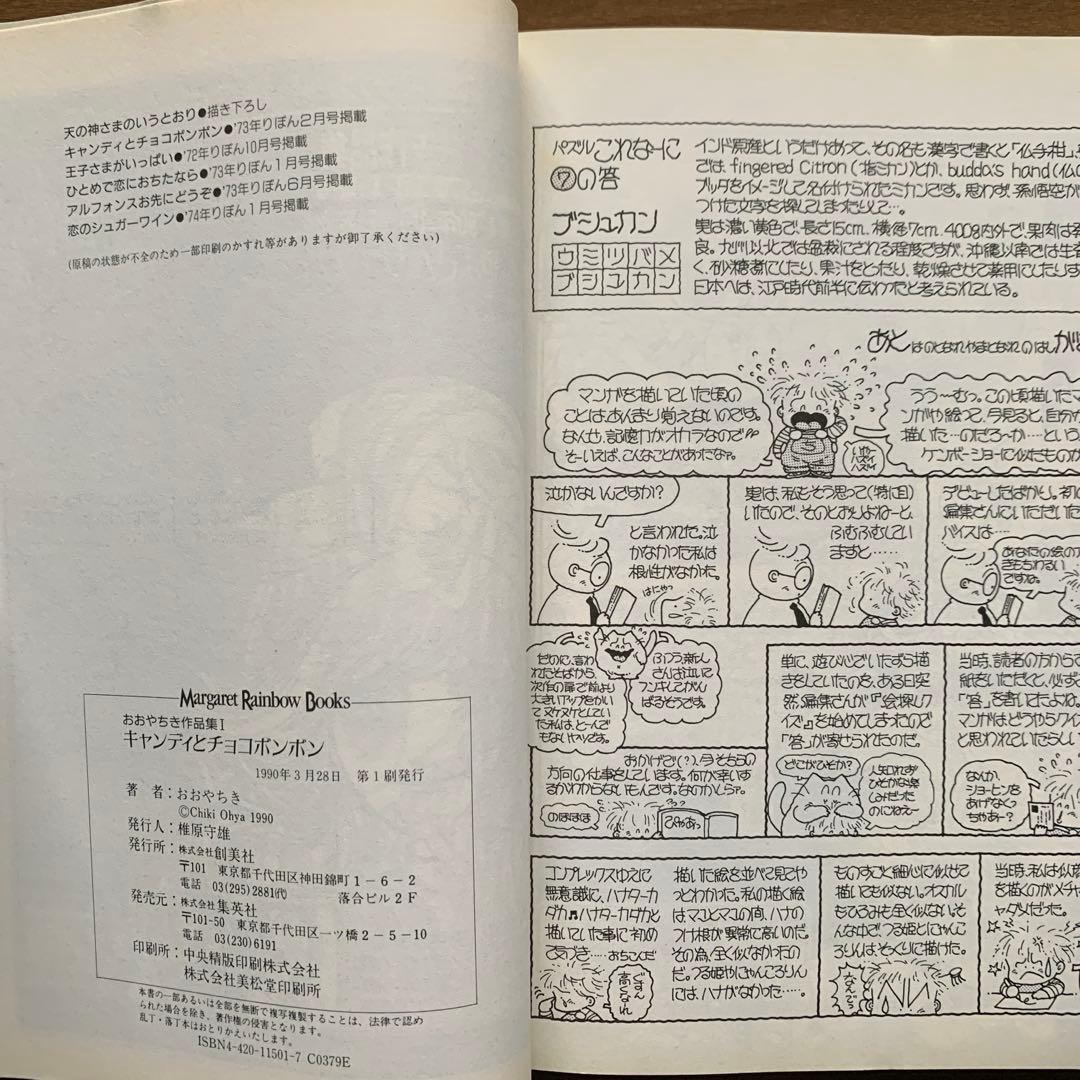 天の神さまのいうとおり●描き下ろし
キャンディとチョコボンボン●'73年りぼん2月号掲載
王子さまがいっぱい●'72年りぼん10月号掲載
ひとめで恋におちたなら●'73年りぼん1月号掲載
アルフォンスお先にどうぞ●'73年りぼん6月号掲載
恋のシュガーワイン●'74年りぼん1月号掲載
(原稿の状態が不全のため一部印刷のかすれ等がありますが御了承ください)
Margaret Rainbow Books
おおやちき作品集I
キャンディとチョコボンボン
1990年3月28日 第1刷発行
著者:おおやちき
©Chiki Ohya 1990
発行人:椎原守雄
発行所:株式会社創美社
〒101 東京都千代田区神田錦町1-6-2
電話 03(295)2881代 落合ビル2F
発売元:株式会社集英社
〒101-50 東京都千代田区一ツ橋2-5-10
電話 03(230)6191
印刷所:中央精版印刷株式会社
株式会社美松堂印刷所
本書の一部あるいは全部を無断で複写複製することは、法律で認め
られた場合を除き、著作権の侵害となります。
乱丁・落丁本はおとりかえいたします。
ISBN4-420-11501-7 C0379E
パズルこれなーに
⑦の答
ブシュカン
ウミツバメ
ブシュカン
インド原産というだけあって、その名も漢字で書くと「仏手柑」
では、fingered Citron(指ミカン)とか、budda's hand(仏の
ブッダをイメージして名付けられたミカンです。思わず、孫悟空が
つけた文字を探してしまったりして…。
実は濃い黄色で、長さ15cm、横径7cm、400g内外で、果肉は
良。九州以北では盆栽にされる程度ですが、沖縄以南では生
く、砂糖煮にしたり、果汁をとったり、乾燥させて薬用にしたりす
日本へは、江戸時代前半に伝わったと考えられている。
あとはのとなれやまとなれのはしがき
マンガを描いていた頃の
ことは、あんまり覚えないのです。
なんせ、記憶力がオカラなので
そーいえば、こんなことがあったなァ。
いやー
ハズイ
ハズイ
うう〜むっ。この頃描いたマ
ンガや絵って、今見ると、自分が
描いた…のだろ〜か…という
ケンボーショーに似たものが
泣かないんですか?
と言われた。泣
かなかった私は
根性がなかった。
はにゃっ
実は、私もそう思って(特に目)
いたので、そのとおりよねーと、
ふむふむしてい
ますと……
デビューしたばかり。初め
編集さんにいただいた
バイスは…
あなたの絵の
きもちわるい
ですね。
だのに、言わ
れたそばから、
次作の扉で前より
大きいアップをかい
て、ヌケヌケとしてい
た私は、とーんで
もないヤツです。
ふつう、新人
さんは泣いて
フンキしてがん
ばるそうです。
単に、遊び心でいたずら描
きをしていたのを、ある日突
然、編集さんが『絵探しク
イズ』を始めてしまったので
「答」が寄せられたのだ。
当時、読者の方からで
紙をいただくと、必ず
「答」を書いてたよね。
マンガはどうやらクイズ
と思われていたらしい
おかげで(?)、今そちらの
方向の仕事をしています。何が幸いす
るかわからないもんです。なのかしらァ。
のほほほ
ひゃあっ
どこがひそか?
人知れず
ひそかな楽
しみだった
のにねえ〜
なんか、
ショーヒンを
あげなくっ
ちゃあー?
コンプレックスゆえに
無意識に、ハナターカ
ダカ♫ハナターカダカと
描いていた事に初め
て気づき…おちこんだ
ぐすん
高くな〜れ
描いた絵を並べて見てや
っとわかった。私の描く絵
はマユとマユの間、ハナの
つけ根が異常に高いのだ。
その為、全く似なかったの
だ。つる姫やにゃんころりん
には、ハナがなかった…。
ものすごく細心に似せて
描いても似ない。オスカル
もひろみも全く似ない。そ
んな中で、つる姫とにゃんこ
ろりんは、そっくりに描けた。
なんでっ
当時、私は似
を描くのがメチャ
ャダメだった。